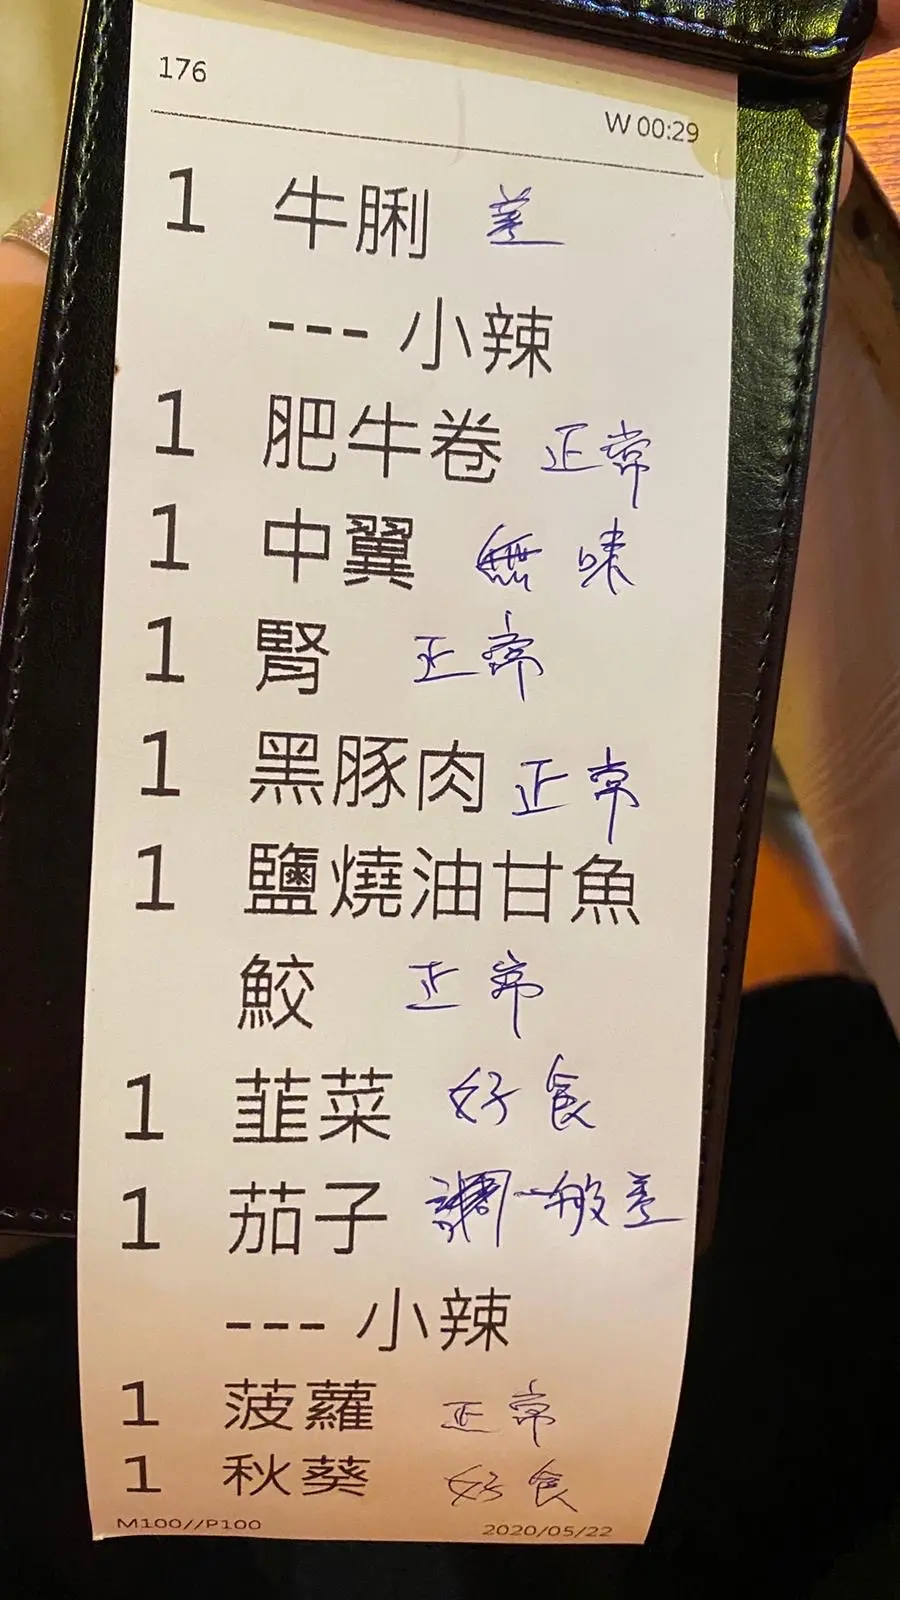 176
W 00:29
1 牛脷 差
--- 小辣
1 肥牛卷 正常
1 中翼 無味
1 腎 正常
1 黑豚肉 正常
1 鹽燒油甘魚
鮫 正常
1 韮菜 好食
1 茄子 一般差
--- 小辣
1 菠蘿 正常
1 秋葵 好食
M100//P100
2020/05/22